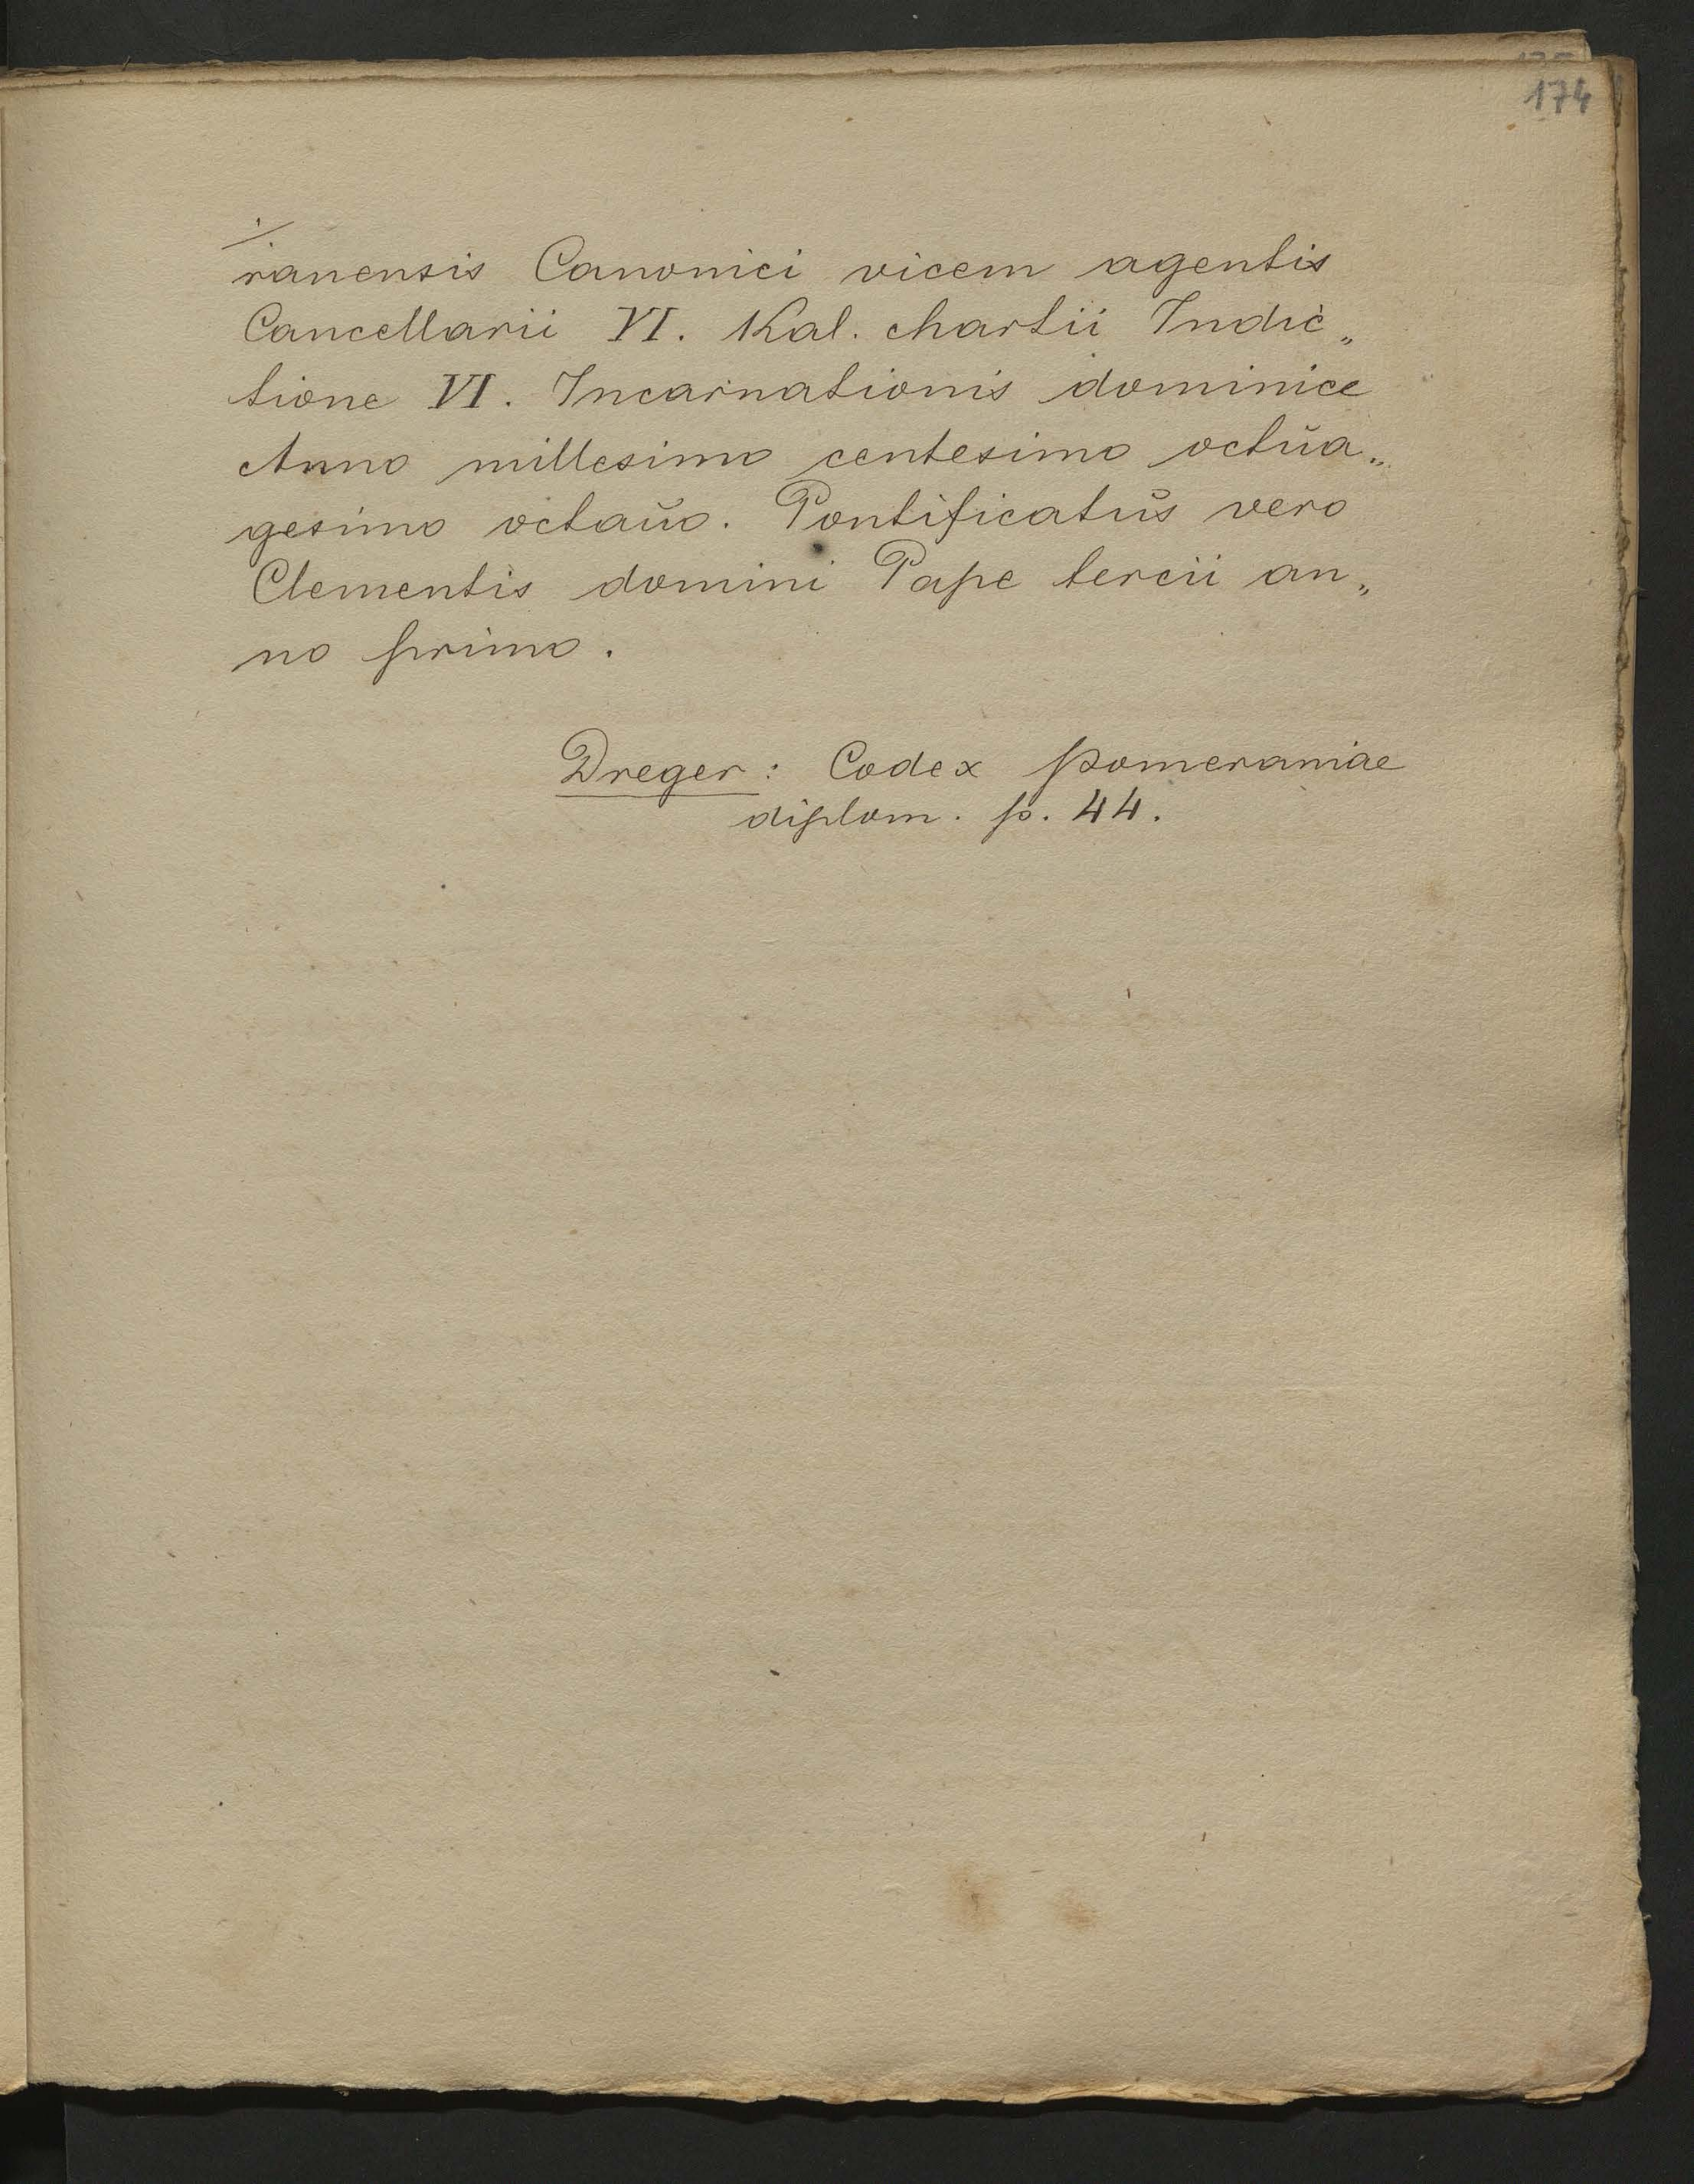 174
./.
ranensis Canonici vicem agentis
Cancellarii VI. Kal. Martii Indic„
tione VI. Incarnationis dominice
Anno millesimo centesimo octŭa„
gesimo octaŭo. Pontificatŭs vero
Clementis domini Pape tercii an„
no primo.
Dreger: Codex Pomeraniae
diplom. p. 44.